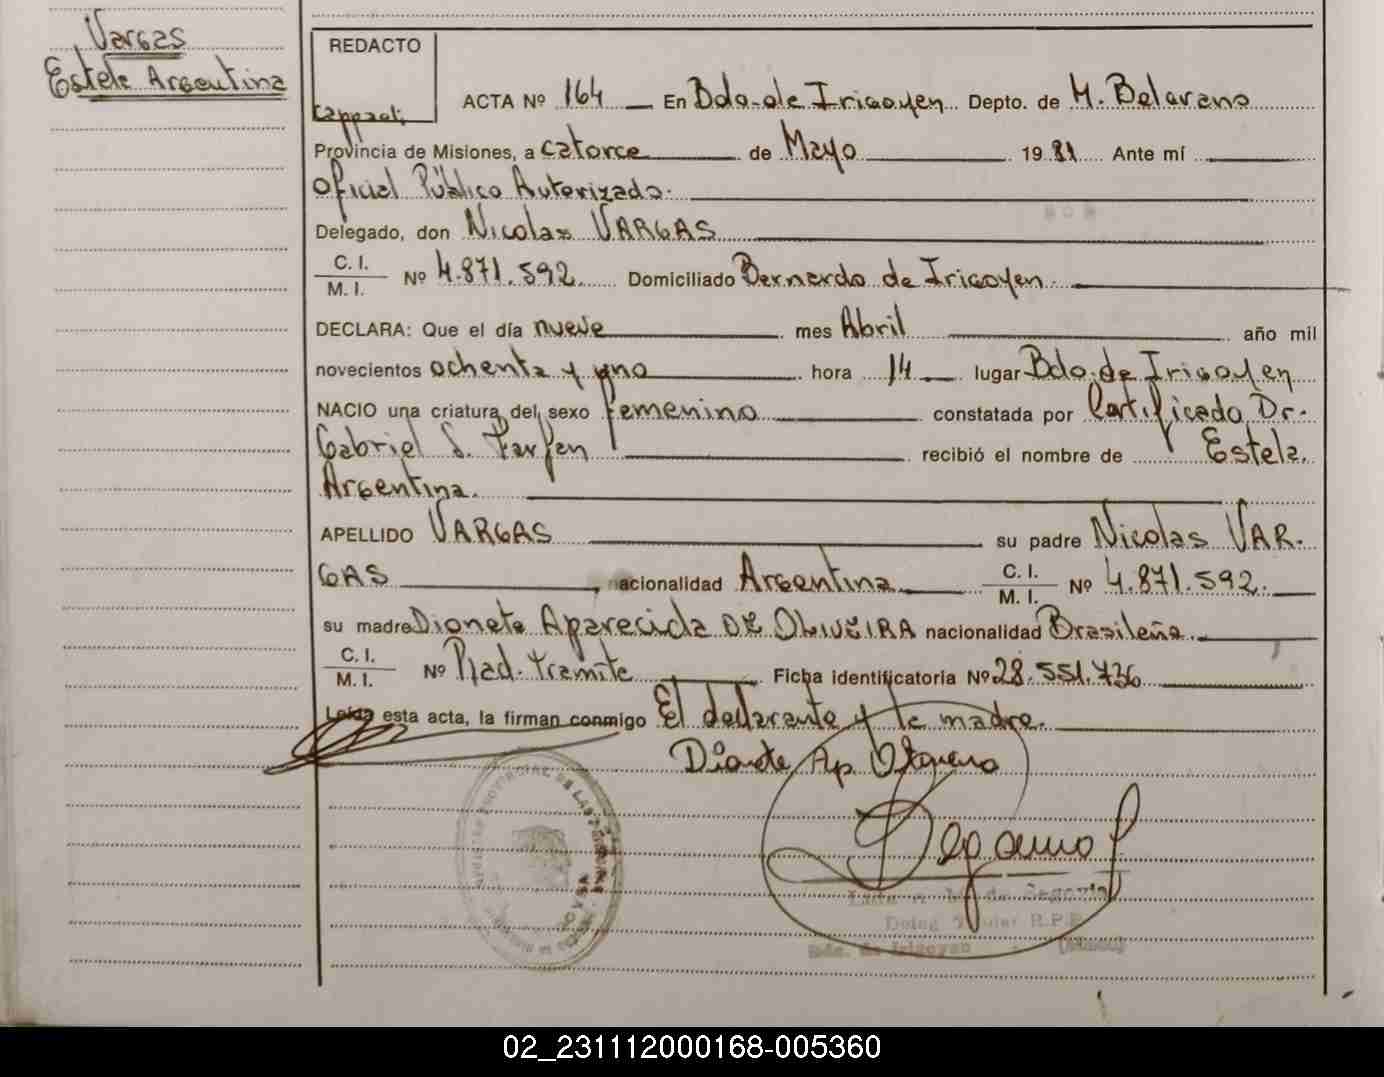 Vargas
Estela Argentina
REDACTO
ACTA Nº 164 En Bdo. de Irigoyen Depto. de M. Belgrano
Provincia de Misiones, a catorce de Mayo 1981 Ante mí
Oficial Público Autorizado.
Delegado, don Nicolas VARGAS
C. I.
M. I.
Nº 4.871.592 Domiciliado Bernardo de Irigoyen
DECLARA: Que el día nueve mes Abril año mil
novecientos ochenta y uno hora 14 lugar Bdo. de Irigoyen
NACIO una criatura del sexo femenino constatada por Certificado Dr.
Gabriel S. Farfan recibió el nombre de Estela
Argentina.
APELLIDO VARGAS su padre Nicolas VAR-
GAS, nacionalidad Argentina C. I.
M. I. Nº 4.871.592.
su madre Dionete Aparecida DE OLIVEIRA nacionalidad Brasileña.
C. I.
M. I.
Nº Rad. tramite Ficha identificatoria Nº 28.551.736
Leída esta acta, la firman conmigo El declarante y la madre.
de Segovia
Bdo. de Irigoyen
02_231112000168-005360